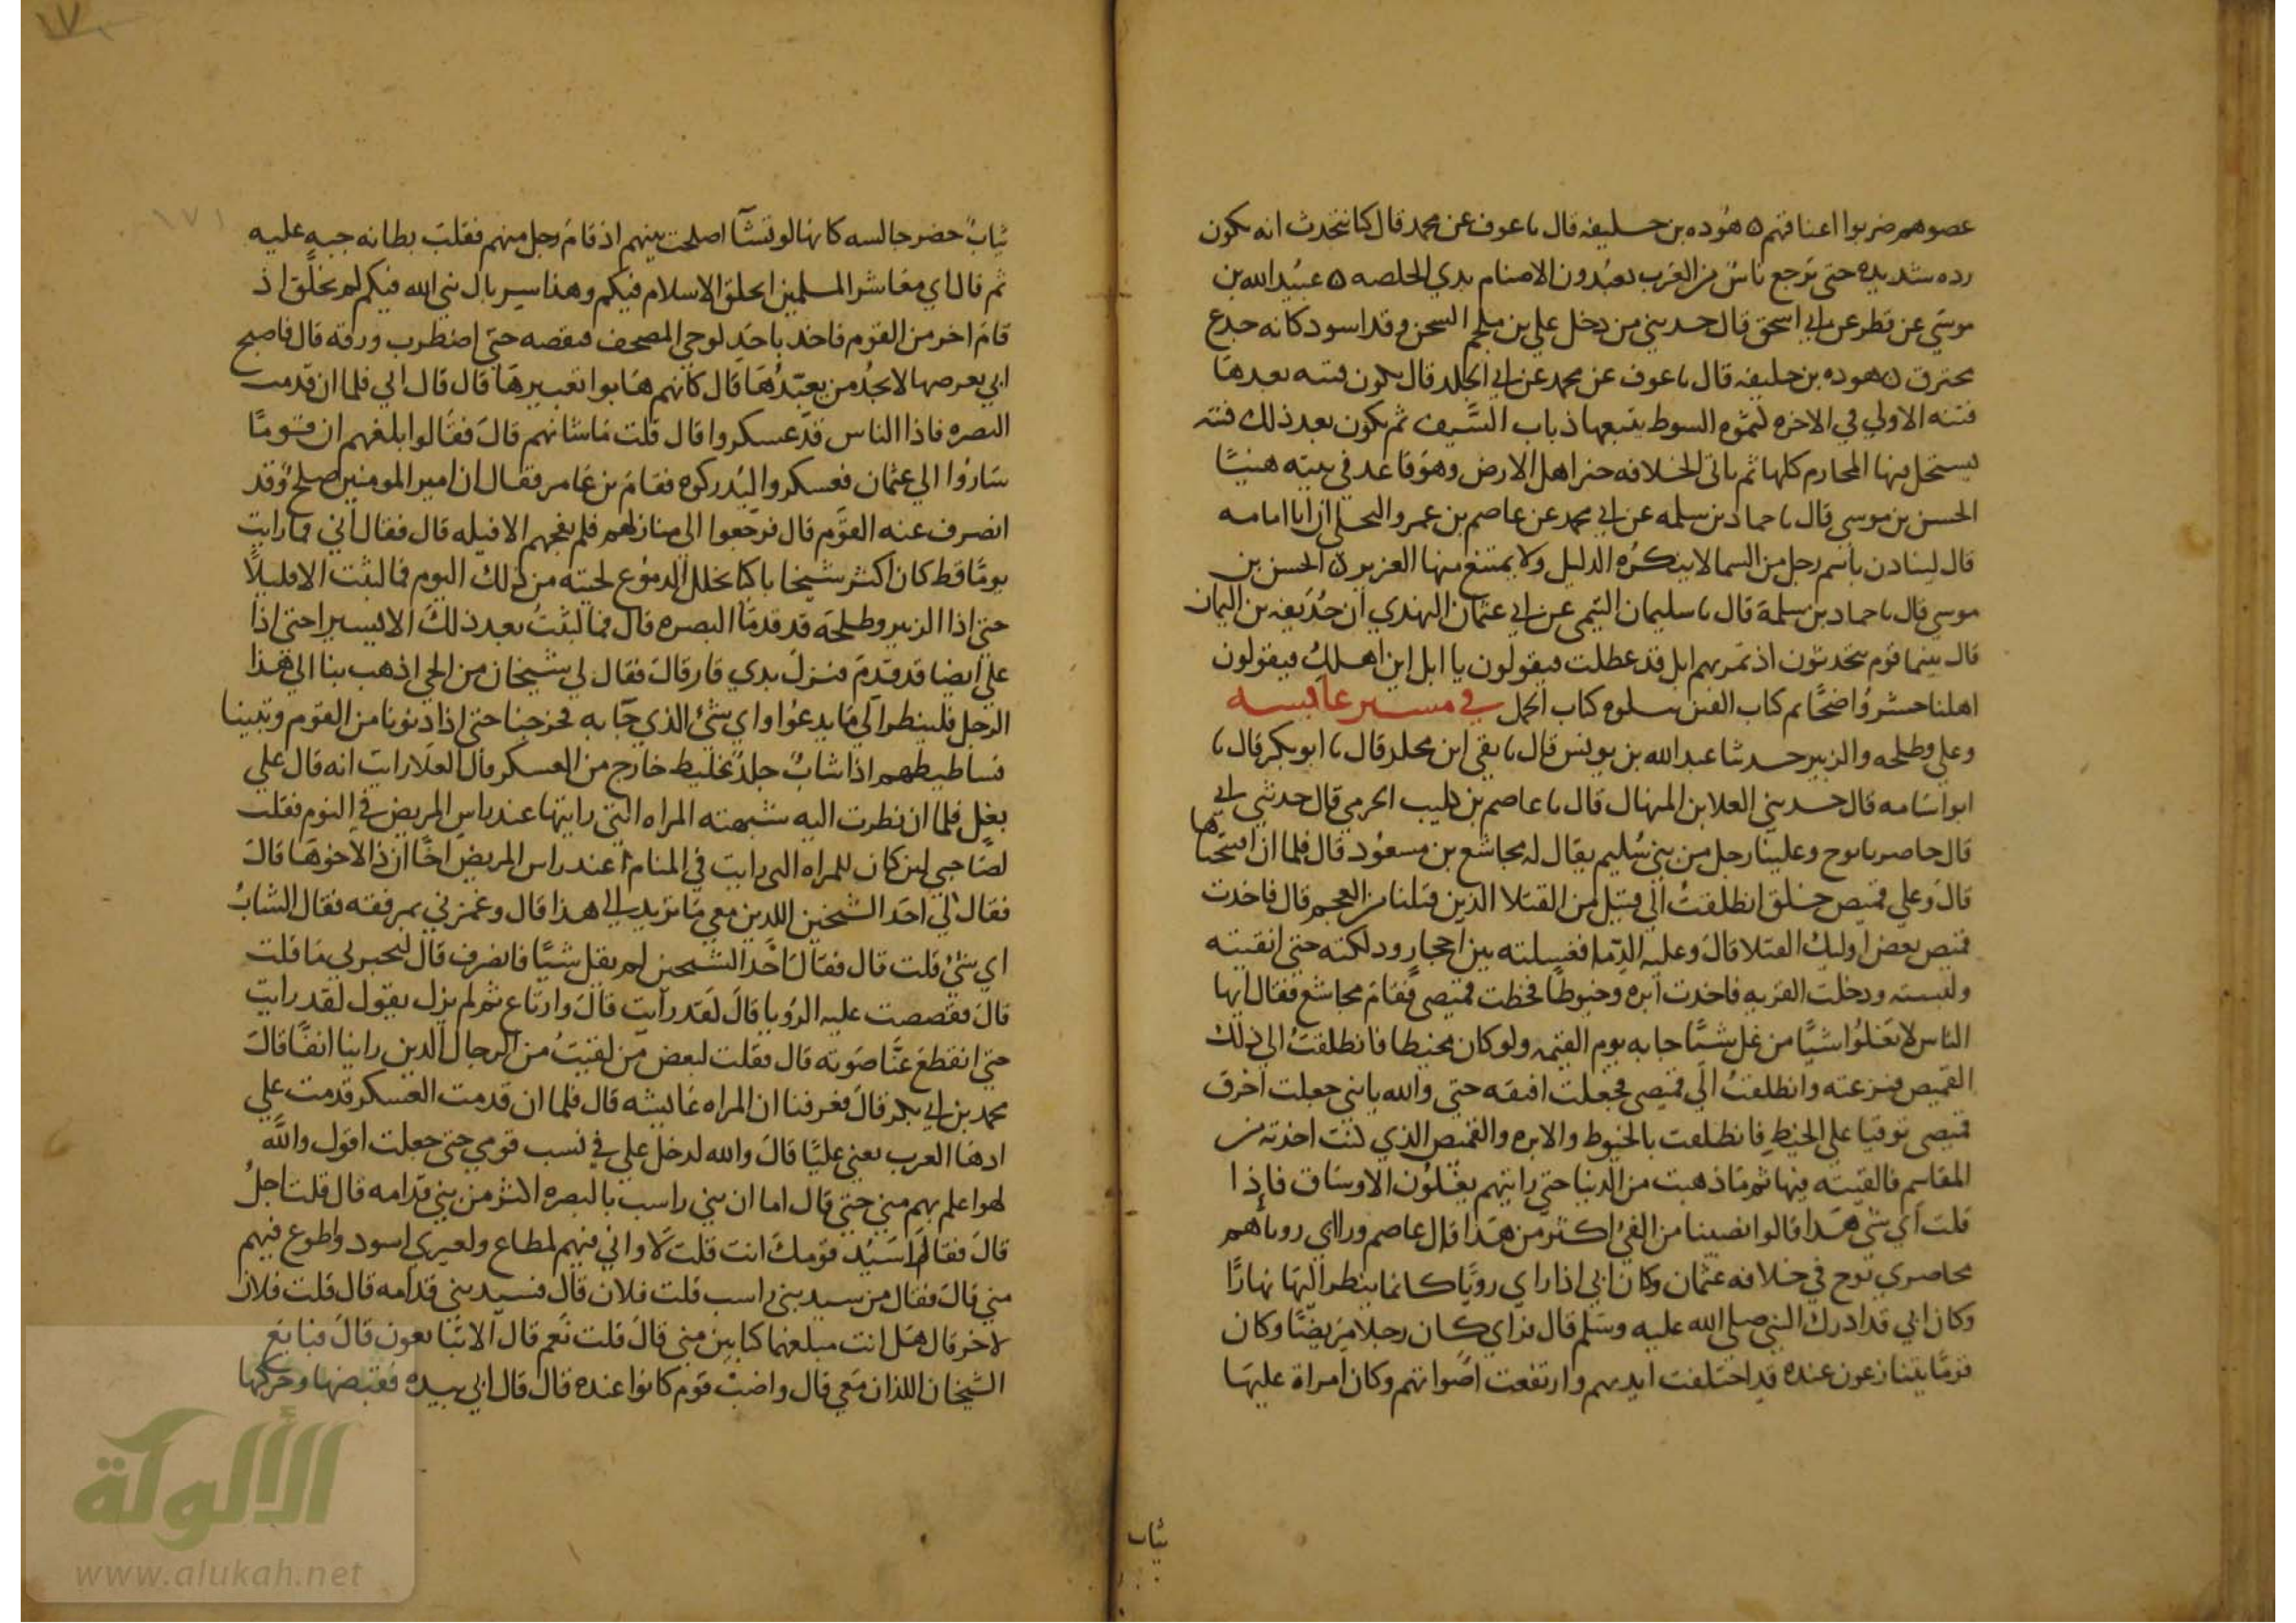 عصوهم ضربوا اعناقهم ٥ هوده بن خليفه قال ٮا عوف عن محمد قال كنا نتحدث انه تكون
رده شديده حتى ترجع ناس من العرب يعبدون الاصنام بذي الخلصه ٥ عبيد الله بن
موسي عن فطر عن ابي اسحق قال حدثني من دخل علي بن ملجم السجن وقد اسود كانه جذع
محترق ٥ هوده بن خليفه قال ٮا عوف عن محمد عن ابي الجلد قال تكون فتنه بعدها
فتنه الاولي في الاخره كثمره السوط يتبعها ذباب السيف ثم تكون بعد ذلك فتنه
يستحل فيها المحارم كلها ثم ياتي الخلافه خير اهل الارض وهو قاعد في بيته هنيئا
الحسن بن موسي قال ٮا حماد بن سلمه عن ابي محمد عن عاصم بن عمرو البجلي ان ابا امامه
قال لينادن باسم رجل من السما لا ينكره الدليل ولا يمتنع منها العزيز ٥ الحسن بن
موسي قال ٮا حماد بن سلمة قال ٮا سليمان التيمي عن ابي عثمان النهدي ان حذيفه بن اليمان
قال بينما قوم يتحدثون اذ تمر بهم ابل قد عطلت فيقولون يا ابل اين اهلك فيقولون
اهلنا حشروا ضحا تم كتاب الفتن يتلوه كتاب الجمل في مسير عايشه
وعلي وطلحه والزبير حدثنا عبد الله بن يونس قال ٮا بقي ابن مخلد قال ٮا ابو بكر قال ٮا
ابو اسامه قال حدثني العلا بن المنهال قال ٮا عاصم بن كليب الجرمي قال حدثني ابي
قال حاصرنا توج وعلينا رجل من بني سليم يقال له مجاشع بن مسعود قال فلما ان افتتحناها
قال وعلي قميص خلق انطلقت الي قتيل من القتلا الذين قتلنا من العجم قال فاخذت
قميص بعض اوليك القتلا قال وعليه الدما فغسلته بين احجار ودلكته حتي انقيته
ولبسته ودخلت القريه فاخذت ابره وخيوطا فخطت قميصي فقام مجاشع فقال ايها
الناس لا تغلوا شيا من غل شيا جا به يوم القيمه ولو كان مخيطا فانطلقت الي ذلك
القميص فنزعته وانطلقت الي قميصي فجعلت افتقه حتي والله يا بني جعلت اخرق
قميصي توقيا علي الخيط فانطلقت بالخيوط والابره والقميص الذي كنت اخذته من
المقاسم فالقيته فيها ثم ما ذهبت من الدنيا حتي رايتهم يغلون الاوساق فاذا
قلت اي شي هذا قالوا نصيبنا من الفي اكثر من هذا قال عاصم وراي رويا هم
محاصري توج في خلافه عثمان وكان ابي اذا راي رويا كانما ينظر اليها نهارا
وكان ابي قد ادرك النبي صلي الله عليه وسلم قال فراي كان رجلا مريضا وكان
قوما يتنازعون عنده قد اختلفت ايديهم وارتفعت اصواتهم وكان امراة عليها
ثياب
١٧١
ثياب خضر جالسه كانها لو تشا اصلحت بينهم اذ قام رجل منهم فقلب بطانه جبه عليه
ثم قال اي معاشر المسلمين ايخلق الاسلام فيكم وهذا سربال نبي الله فيكم لم يخلق اذ
قام اخر من القوم فاخذ باحد لوحي المصحف فنفضه حتي اضطرب ورقه قال فاصبح
ابي يعرضها لا يجد من يعبرها قال كانهم هابوا تعبيرها قال قال ابي فلما ان قدمت
البصره فاذا الناس قد عسكروا قال قلت ما شانهم قال فقالوا بلغهم ان قوما
ساروا الي عثمان فعسكروا ليدركوه فقام بن عامر فقال ان امير المومنين صلح وقد
انصرف عنه القوم قال فرجعوا الي منازلهم فلم يفجهم الا قتله قال فقال ابي فما رايت
يوما قط كان اكثر شيخا باكيا تخلل الدموع لحيته من ذلك اليوم فما لبثت الا قليلا
حتي اذا الزبير وطلحه قد قدما البصره قال فما لبثت بعد ذلك الا يسيرا حتي اذا
علي ايضا قد قدم فنزل بذي قار قال فقال لي شيخان من الحي اذهب بنا الي هذا
الرجل فلينظر الي ما يدعوا واي شي الذي جا به فخرجنا حتي اذا دنونا من القوم وتبينا
فساطيطهم اذا شاب جلد غليظ خارج من العسكر قال العلا رايت انه قال علي
بغل فلما ان نظرت اليه شبهته المراه التي رايتها عند راس المريض في النوم فقلت
لصاحبي لين كان للمراه التي رايت في المنام عند راس المريض اخا ان ذا لاخوها قال
فقال لي احد الشيخين اللذين معي ما تريد الي هذا قال وغمزني بمرفقه فقال الشاب
اي شي قلت قال فقال احد الشيخين لم يقل شيا فانصرف قال لتخبرني ما قلت
قال فقصصت عليه الرويا قال لقد رايت قال وارتاع ثم لم يزل يقول لقد رايت
حتي انقطع عنا صوته قال فقلت لبعض من لقيت من الرجال الذين راينا انفا قال
محمد بن ابي بكر قال فعرفنا ان المراه عايشه قال فلما ان قدمت العسكر قدمت علي
ادها العرب يعني عليا قال والله لدخل علي في نسب قومي حتي جعلت اقول والله
لهو اعلم بهم مني حتي قال اما ان بني راسب بالبصره اكثر من بني قدامه قال قلت اجل
قال فقال اسيد قومك انت قلت لا واني فيهم لمطاع ولغيري اسود واطوع فيهم
مني قال فقال من سيد بني راسب قلت فلان قال فسيد بني قدامه قال قلت فلان
لاخر قال هل انت مبلغهما كتابين مني قال قلت نعم قال الا تبايعون قال فبايع
الشيخان اللذان معي قال واضب قوم كانوا عنده قال قال ابي بيده فقبضها وحركها
الألوكة
www.alukah.net